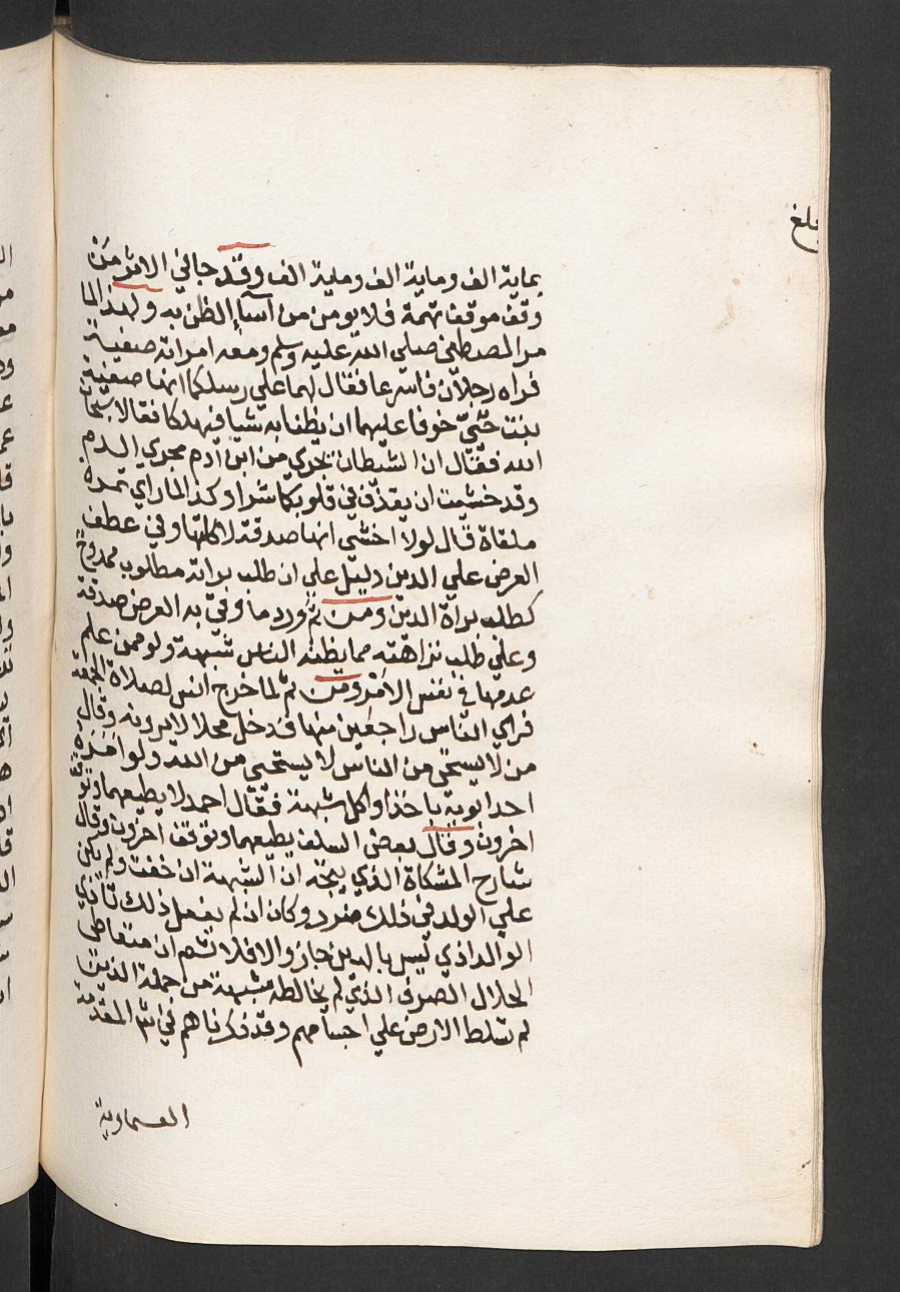 بلغ
بماية الف وماية الف وماية الف وقد جا في الاثر من
وقف موقف تهمة فلا يومن من اسآء الظن به ولهذا لما
مر المصطفي صلي الله عليه وسلم ومعه امراته صفية
فراه رجلان فاسرعا فقال لهما علي رسلكما انها صفية
بنت حُيَيّ خوفا عليهما ان يظنا به شيا فيهلكا فقالا سبحان
الله فقال ان الشيطان يجري من ابن ادم مجري الدم
وقد خشيت ان يقذف في قلوبكما شرا وكذا لما راي تمرة
ملقاة قال لولا اخشي انها صدقة لاكلتها وفي عطف
العرض علي الدين دليل علي ان طلب براته مطلوب ممدوح
كطلب براة الدين ومن ثم ورد ما وقي به العرض صدقة
وعلي طلب نزاهته مما يظنه الناس شبهة ولو ممن علم
عدمها في نفس الامر ومن ثم لما خرج انس لصلاة الجمعة
فراي الناس راجعين منها فدخل محلا لا يرونه وقال
من لا يستحي من الناس لا يستحيي من الله ولو امره
احد ابويه باخذ او اكل شبهة فقال احمد لا يطيعهما وتوقف
اخرون وقال بعض السلف يطيعهما وتوقف اخرون وقال
شارح المشكاة الذي يتجه ان الشبهة ان خفت ولم يكن
علي الولد في ذلك ضرر وكان ان لم يفعل ذلك تاذي
الوالد اذي ليس بالهين جاز والا فلا ثم ان متعاطي
الحلال الصرف الذي لم يخالطه شبهة من جملة الذين
لم تسلط الارض علي اجسامهم وقد ذكرناهم في المقدمة
العشماوية